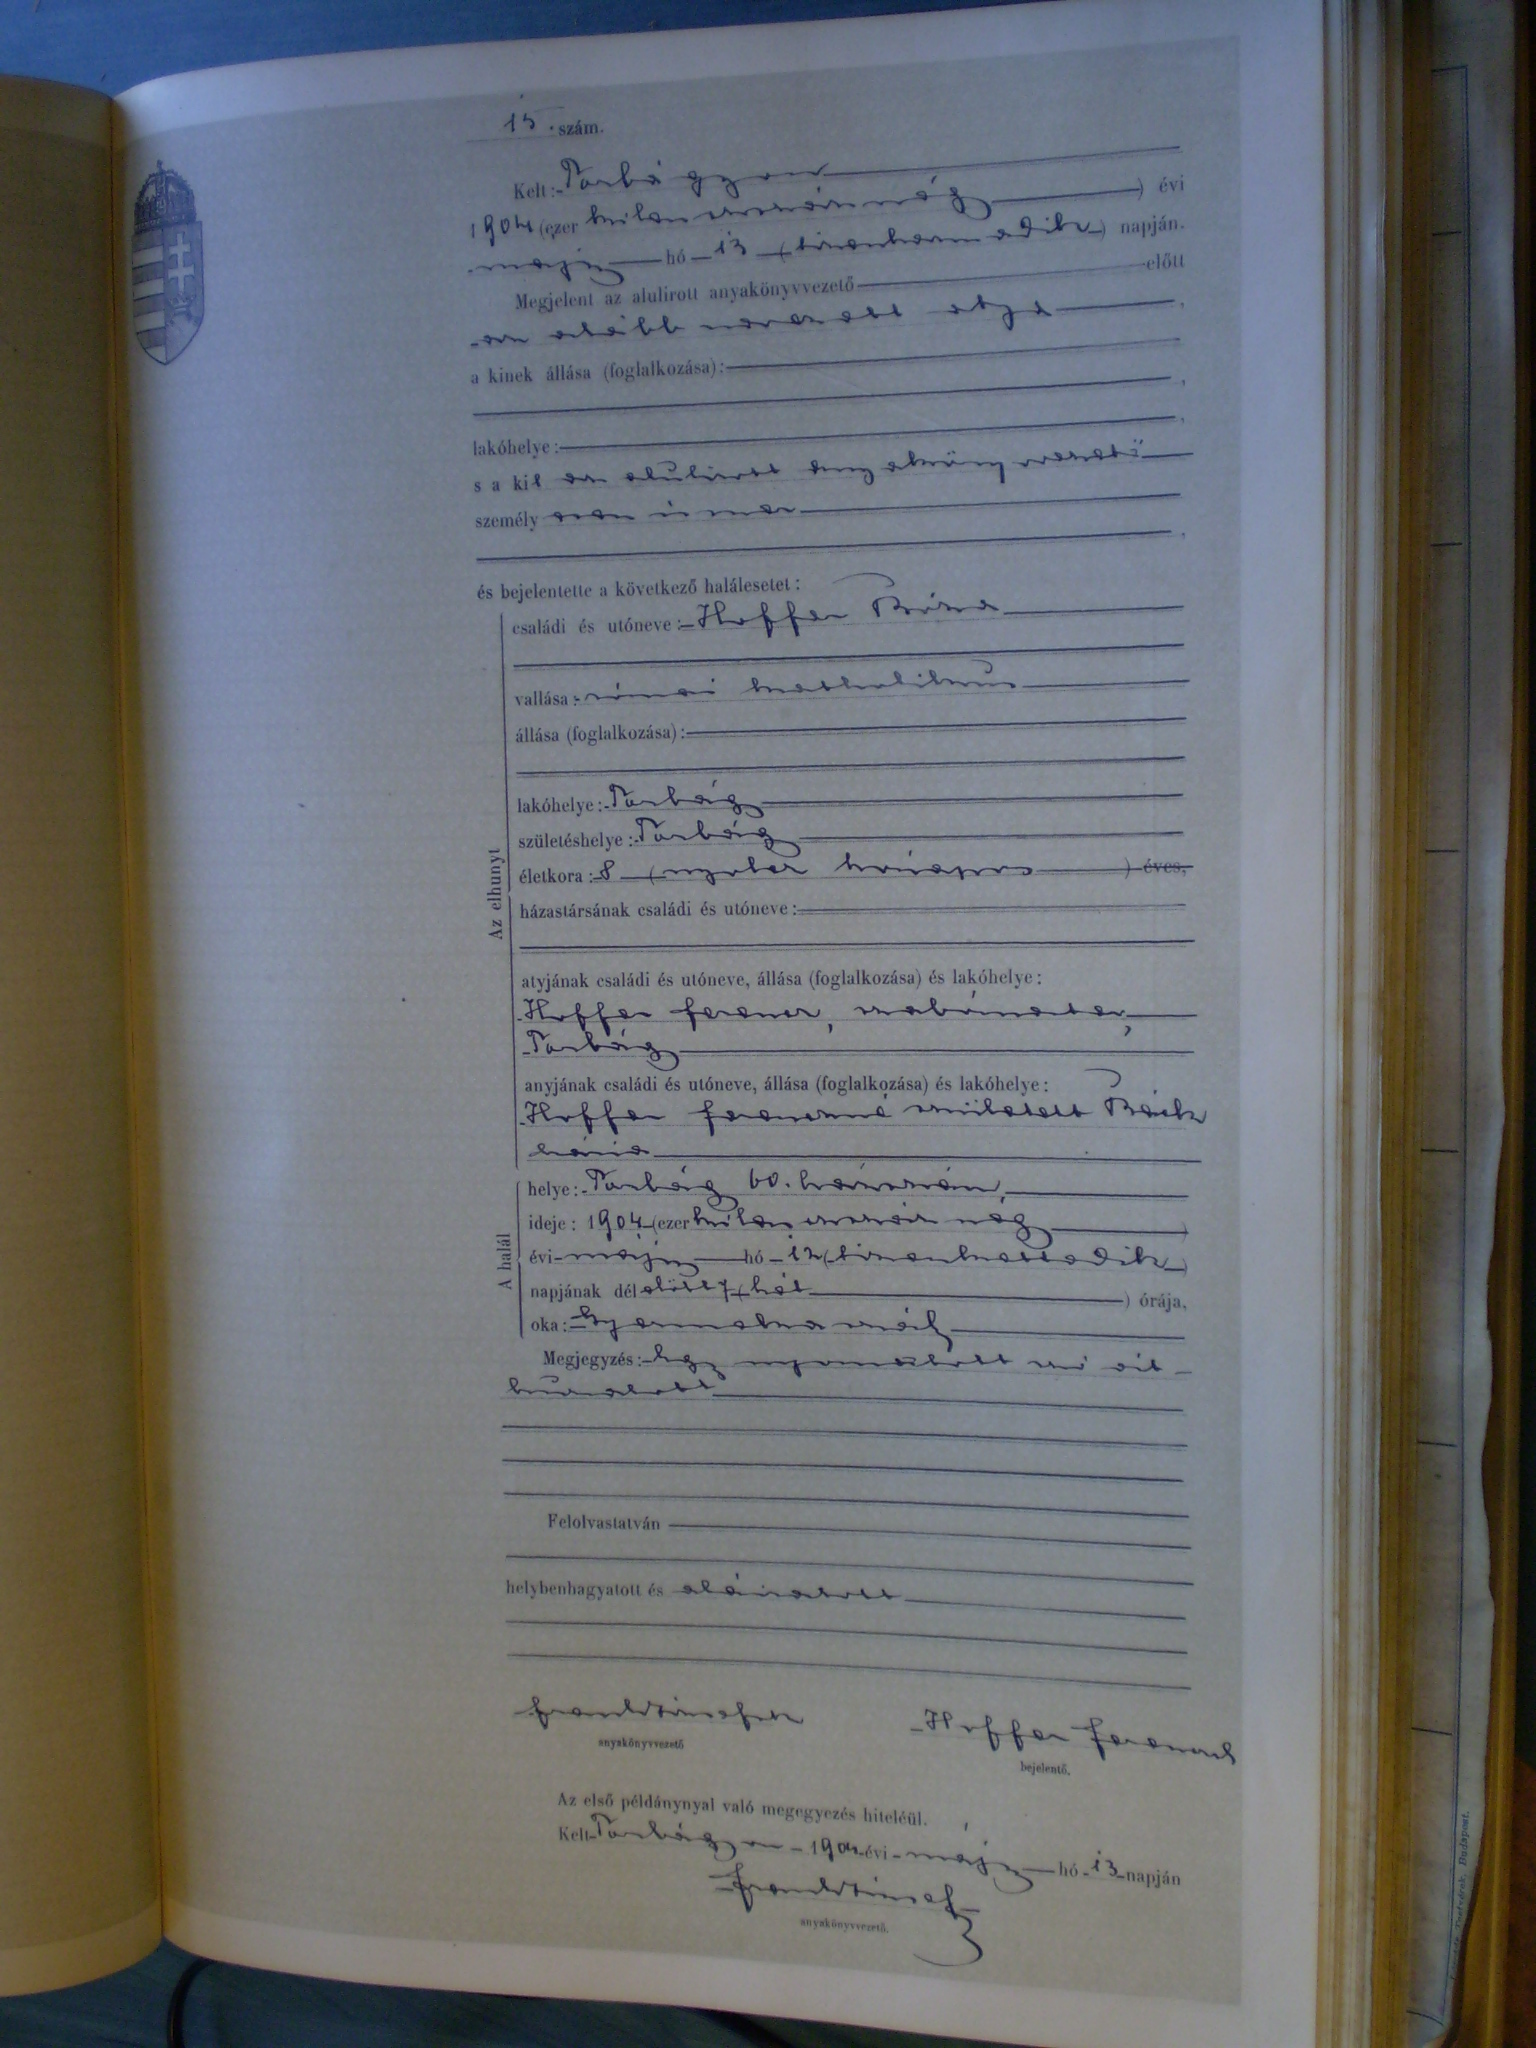 15. szám.
Kelt: Torbágyon
1904 (ezer kilencszáz négy) évi
május hó 13 (tizenharmadik) napján.
Megjelent az alulirott anyakönyvvezető előtt
az alább nevezett atyja,
a kinek állása (foglalkozása):
lakóhelye:
s a kit az alulirott anyakönyvvezető
személyesen ismer
és bejelentette a következő halálesetet:
családi és utóneve: Hoffer Róza
vallása: római katholikus
állása (foglalkozása):
lakóhelye: Torbágy
születéshelye: Torbágy
életkora: 8 (nyolcz hónapos) éves,
házastársának családi és utóneve:
Az elhunyt
atyjának családi és utóneve, állása (foglalkozása) és lakóhelye:
Hoffer Ferencz, szabómester,
Torbágy
anyjának családi és utóneve, állása (foglalkozása) és lakóhelye:
Hoffer Ferenczné született
helye: Torbágy 60. házszám,
ideje: 1904 (ezer kilenczszáz négy)
évi május hó 12 (tizenkettedik)
A halál
napjának délelőtt 7 (hét) órája,
oka: Gyermekaszály
Megjegyzés: Egy nyomtatott szó ki-
huzatott
Felolvastatván
helybenhagyatott és aláiratott
anyakönyvvezető
Hoffer Ferencz
bejelentő.
Az első példánynyal való megegyezés hiteléül.
Kelt Torbágyon 1904 évi május hó 13 napján
anyakönyvvezető.